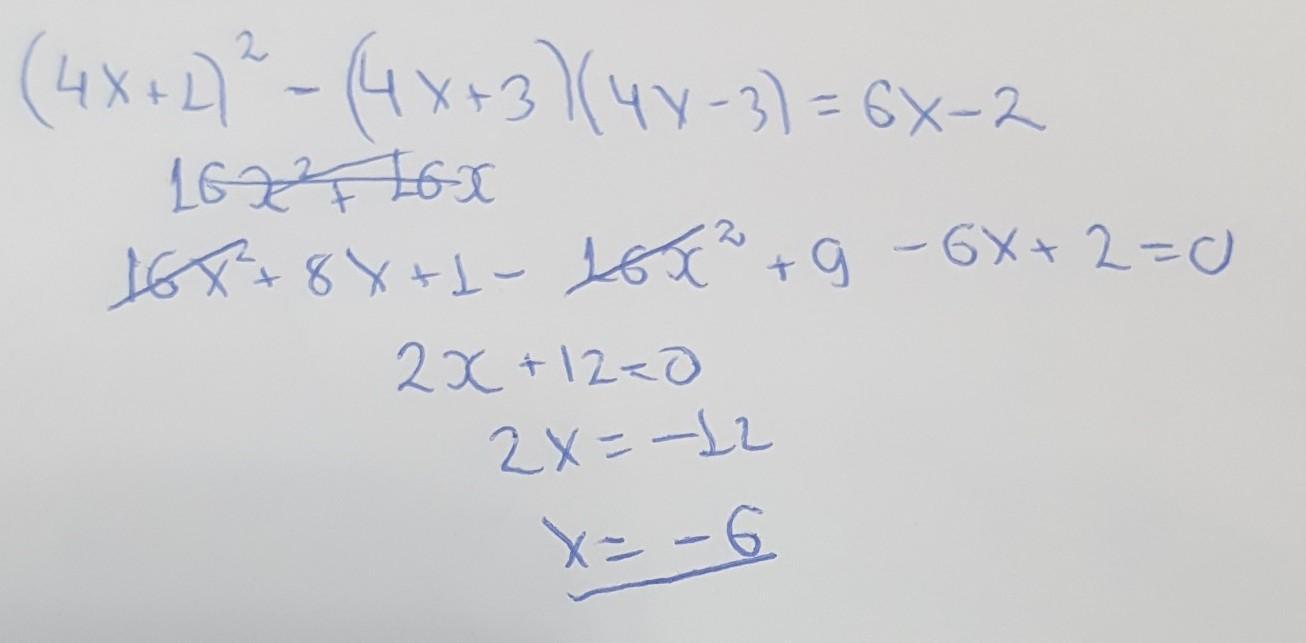 (4x+1)² - (4x+3)(4x-3) = 6x-2
16x² + 16x
16x² + 8x + 1 - 16x² + 9 - 6x + 2 = 0
2x + 12 = 0
2x = -12
x = -6